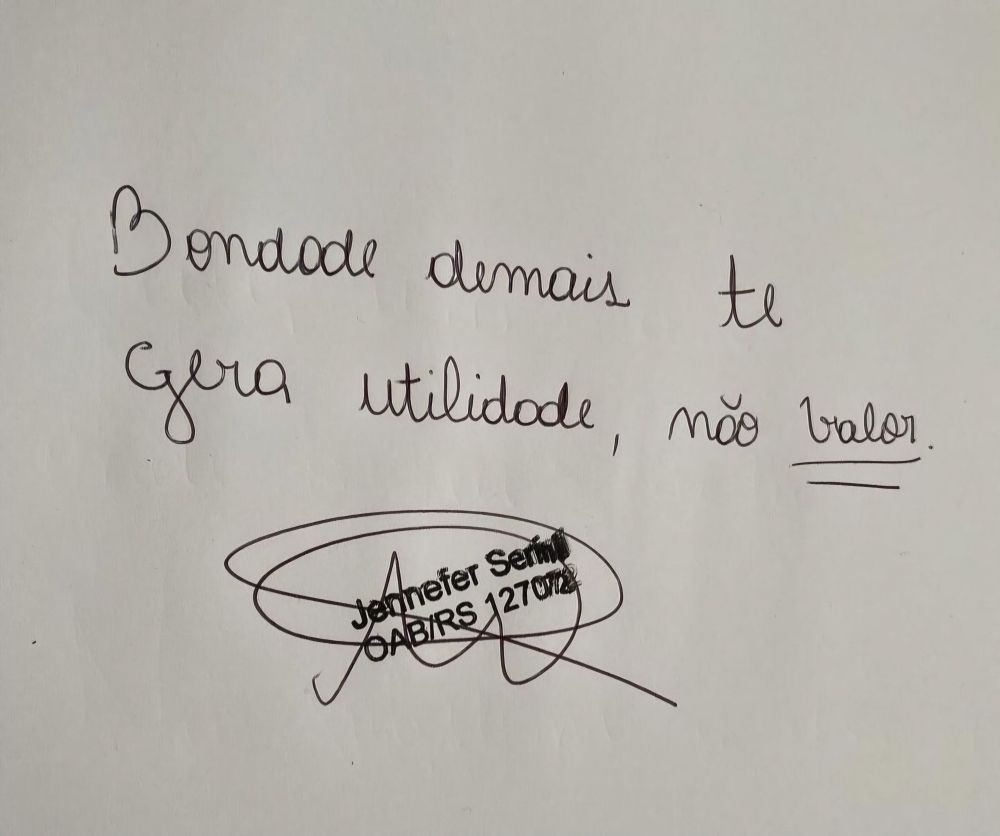 Bondade demais te
Gera utilidade, não valor.
Jennefer
OAB/RS